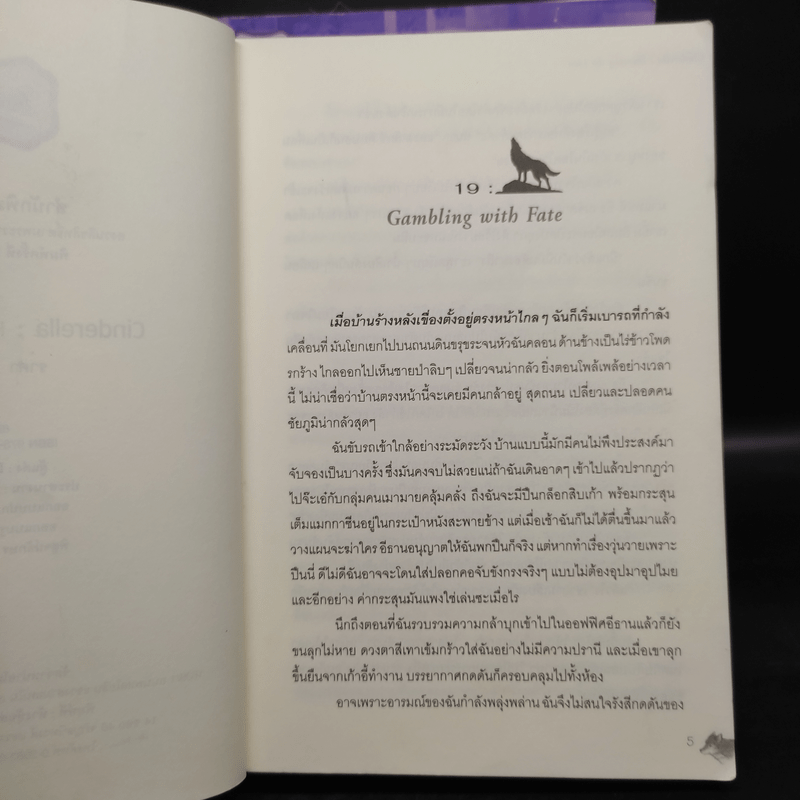 19 :
Gambling with Fate
เมื่อบ้านร้างหลังเขื่องตั้งอยู่ตรงหน้าไกลๆ ฉันก็เริ่มเบารถที่กำลัง
เคลื่อนที่ มันโยกเยกไปบนถนนดินขรุขระจนหัวฉันคลอน ด้านข้างเป็นไร่ข้าวโพด
รกร้าง ไกลออกไปเห็นชายป่าลิบๆ เปลี่ยวจนน่ากลัว ยิ่งตอนโพล้เพล้อย่างเวลา
นี้ ไม่น่าเชื่อว่าบ้านตรงหน้านี้จะเคยมีคนกล้าอยู่ สุดถนน เปลี่ยวและปลอดคน
ชัยภูมิน่ากลัวสุดๆ
ฉันขับรถเข้าใกล้อย่างระมัดระวัง บ้านแบบนี้มักมีคนไม่พึงประสงค์มา
จับจองเป็นบางครั้ง ซึ่งมันคงจบไม่สวยแน่ถ้าฉันเดินอาดๆ เข้าไปแล้วปรากฏว่า
ไปจ๊ะเอ๋กับกลุ่มคนเมามายคลุ้มคลั่ง ถึงฉันจะมีปืนกล็อกสิบเก้า พร้อมกระสุน
เต็มแมกกาซีนอยู่ในกระเป๋าหนังสะพายข้าง แต่เมื่อเช้าฉันก็ไม่ได้ตื่นขึ้นมาแล้ว
วางแผนจะฆ่าใคร อีธานอนุญาตให้ฉันพกปืนก็จริง แต่หากทำเรื่องวุ่นวายเพราะ
ปืนนี่ ดีไม่ดีฉันอาจจะโดนใส่ปลอกคอจับขังกรงจริงๆ แบบไม่ต้องอุปมาอุปไมย
และอีกอย่าง ค่ากระสุนมันแพงใช่เล่นซะเมื่อไร
นึกถึงตอนที่ฉันรวบรวมความกล้าบุกเข้าไปในออฟฟิศอีธานแล้วก็ยัง
ขนลุกไม่หาย ดวงตาสีเทาเข้มกร้าวใส่ฉันอย่างไม่มีความปรานี และเมื่อเขาลุก
ขึ้นยืนจากเก้าอี้ทำงาน บรรยากาศกดดันก็ครอบคลุมไปทั้งห้อง
อาจเพราะอารมณ์ของฉันกำลังพลุ่งพล่าน ฉันจึงไม่สนใจรังสีกดดันของ
5